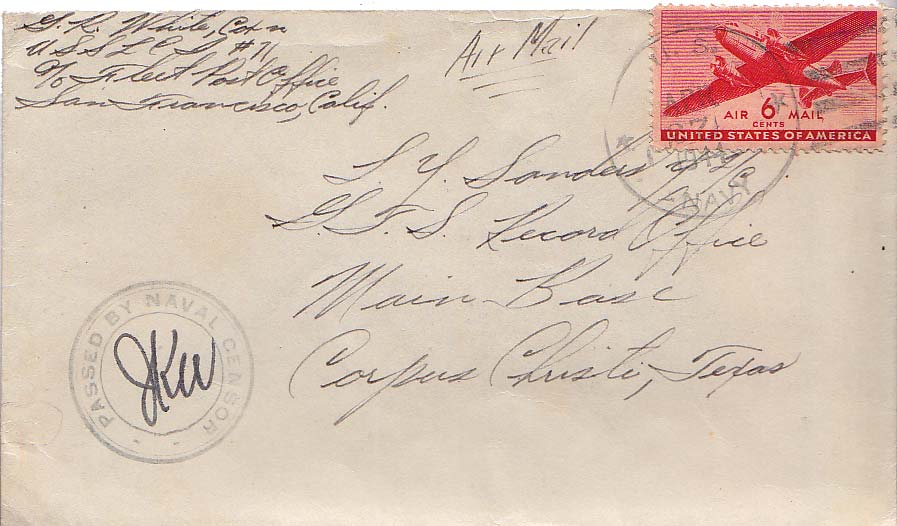 G. R. White, Cox'n
U.S.S. L.C.I. #71
c/o Fleet Post Office
San Francisco, Calif.
Air Mail
AIR 6 MAIL
CENTS
UNITED STATES OF AMERICA
1944
NAVY
S. Y. Sanders
G. T. S. Record Office
Main Base
Corpus Christi, Texas
PASSED BY NAVAL CENSOR
JKW